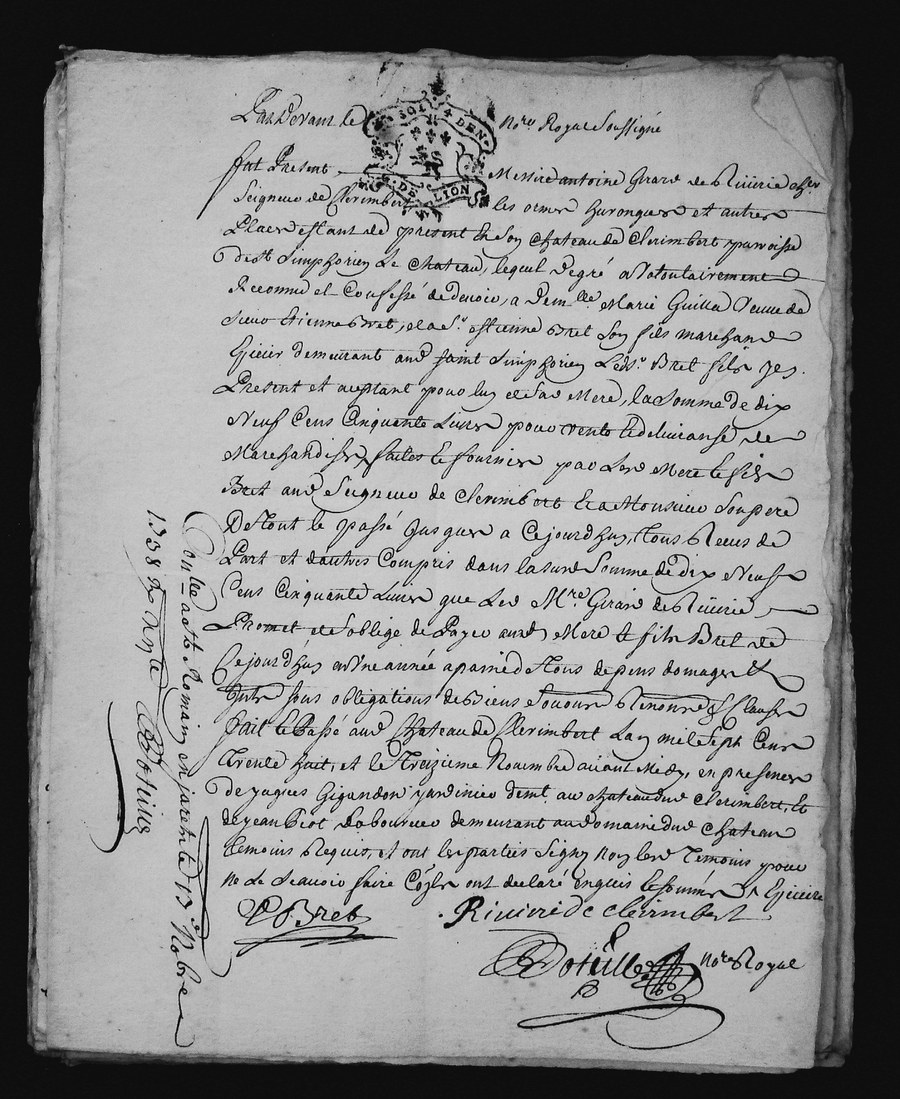 Pardevant le Nore Royal Soussigné
fut Present Messire antoine Girard de Riuirie cher
Seigneur de Clerimbert les ormes hurongues et autres
Places estant de present En Son Chateau de Clerimbert parroisse
de st Simphorien Le Chateau, lequel de gré a Vollontairement
Reconnu et Confessé de devoir, a Demlle Marie Guilla Veuue de
Sieur Etienne Bret, et a Sr. Estienne Bret Son fils marchand
Epicier demeurant aud saint Simphorien Leds. Bret fils Jcy
Present et aceptant pour luy et Sad Mere, la Somme de dix
Neuf Cens Cinquante Liures pour vente et deliuranse de
Marchandises faites et fournies par Lesd Mere et fils
Bret aud Seigneur de Clerimbert et a Monsieur Son pere
De tout le passé Jusques a Cejourdhuy, tous Receus de
Part et dautres Compris dans lasusd Somme de dix Neuf
Cens Cinquante Liures que Led Mre. Girard de Riuirie
Promet et Soblige de Payer auxd Mere et fils Bret de
Cejourdhuy en Vne année a paine de tous depens domages et
sous obligations de Biens Renonce & Clauses
fait et Passé aud Chateau de Clerimbert Lan mil Sept Cens
Trente huit, et le Treizieme Nouembre auant Midy, en presence
de Jaques Gigandon Jardinier demt. au chateau dud Clerimbert, Et
de Jean Piot Laboureur demeurant au domaine dud Chateau
temoins Requis, et ont les parties Signé non lesd Temoins pour
ne Le Scauoir faire Ce qu'ils ont declaré enquis et Sommés Epicier
E Bret
Riuirie de clerimbert
nore Royal
Conllé a st Romain en jarest le 13e Nobre
1738 R